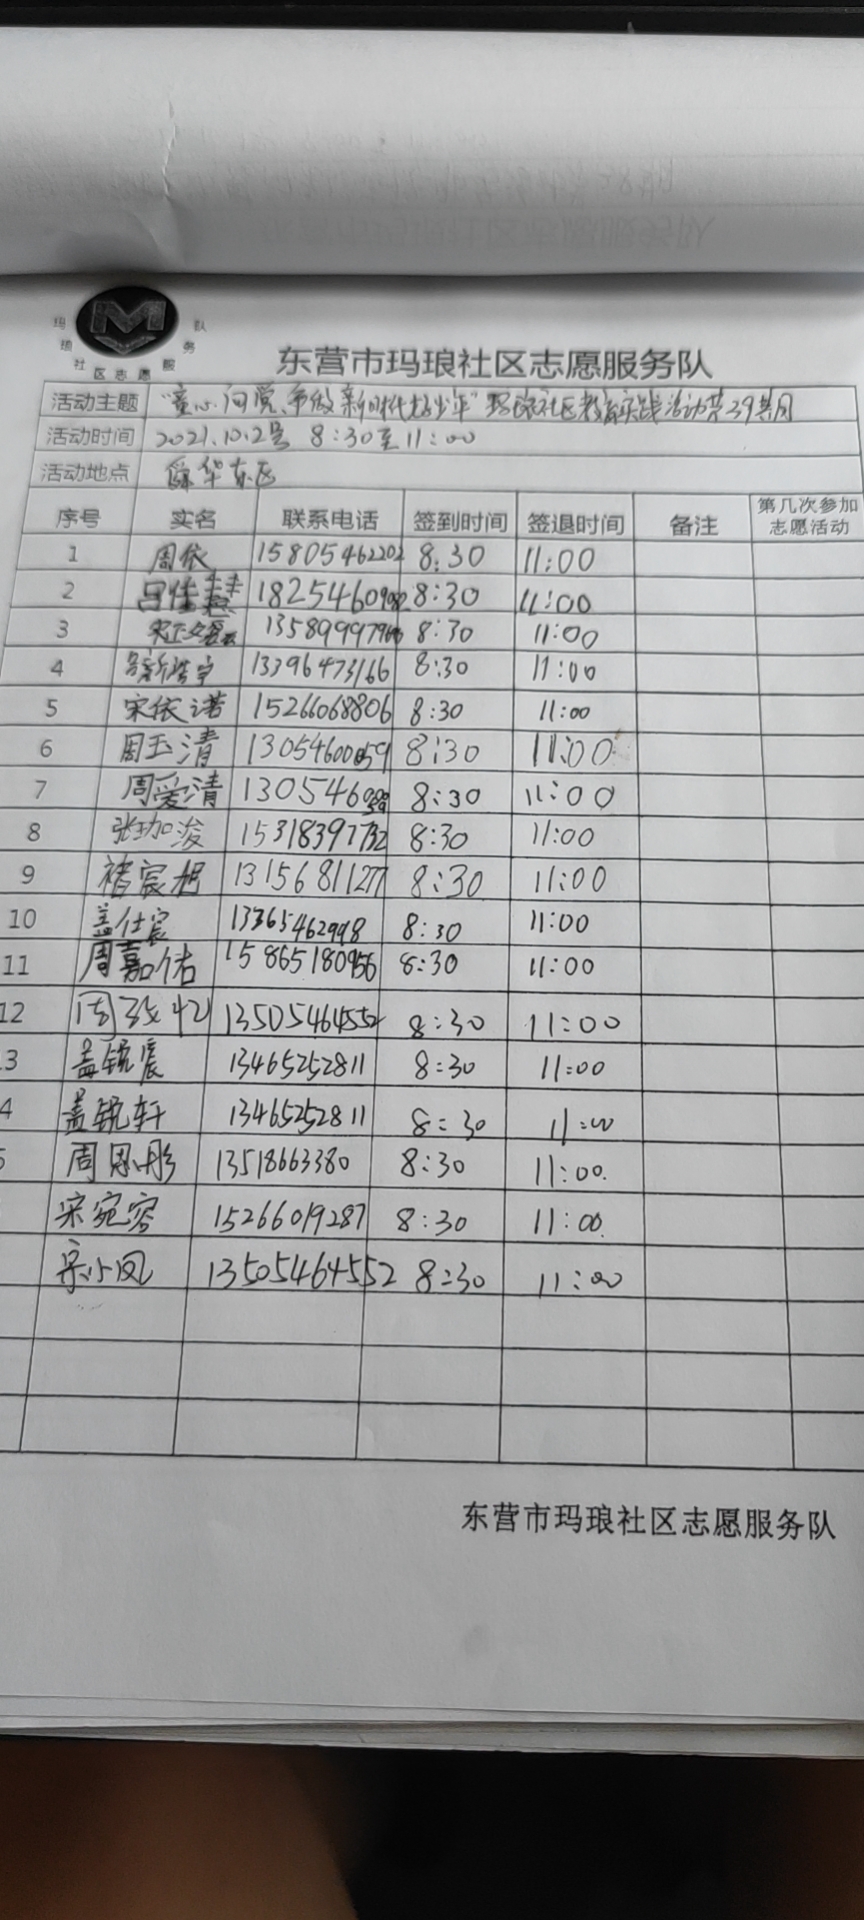 玛琅社区志愿服务队
东营市玛琅社区志愿服务队
活动主题 "童心向党、争做新时代好少年"玛琅社区教育实践活动第39共同
活动时间 2021.10.2号 8:30至11:00
活动地点 华东区
序号 实名 联系电话 签到时间 签退时间 备注 第几次参加志愿活动
1 周依 15805462202 8:30 11:00
2 吕佳 8:30 11:00
3 8:30 11:00
4 13396473166 8:30 11:00
5 宋依诺 15266068806 8:30 11:00
6 周玉清 8:30 11:00
7 周爱清 8:30 11:00
8 张珈浚 15318397732 8:30 11:00
9 褚宸旭 13156811277 8:30 11:00
10 盖仕宸 13365462998 8:30 11:00
11 周嘉佑 15865180956 8:30 11:00
12 周 忆 13505464552 8:30 11:00
3 盖锐宸 13465252811 8:30 11:00
4 盖锐轩 13465252811 8:30 11:00
5 周思彤 13518663380 8:30 11:00.
宋宛容 15266019287 8:30 11:00.
宗小凤 13505464552 8:30 11:00
东营市玛琅社区志愿服务队